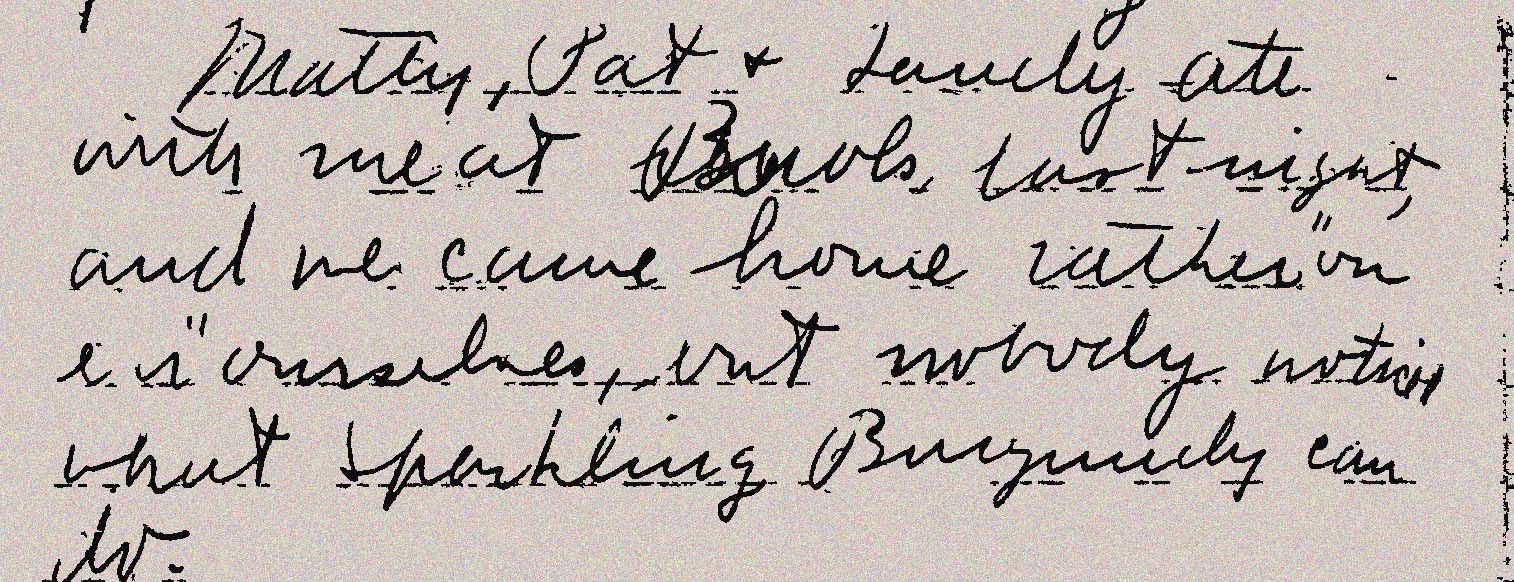 Matty, Pat + Sandy ate
with me at last night,
and we came home rather "on
en" ourselves, but nobody
what sparkling Burgundy can
do.